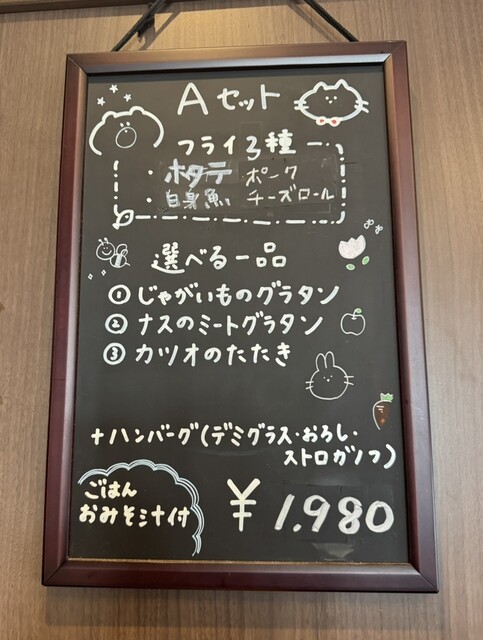 Aセット
フライ3種
・ホタテ ポーク
・白身魚 チーズロール
選べる一品
①じゃがいものグラタン
②ナスのミートグラタン
③カツオのたたき
+ハンバーグ(デミグラス・おろし・
ストロガノフ)
ごはん
おみそ汁付
¥1.980